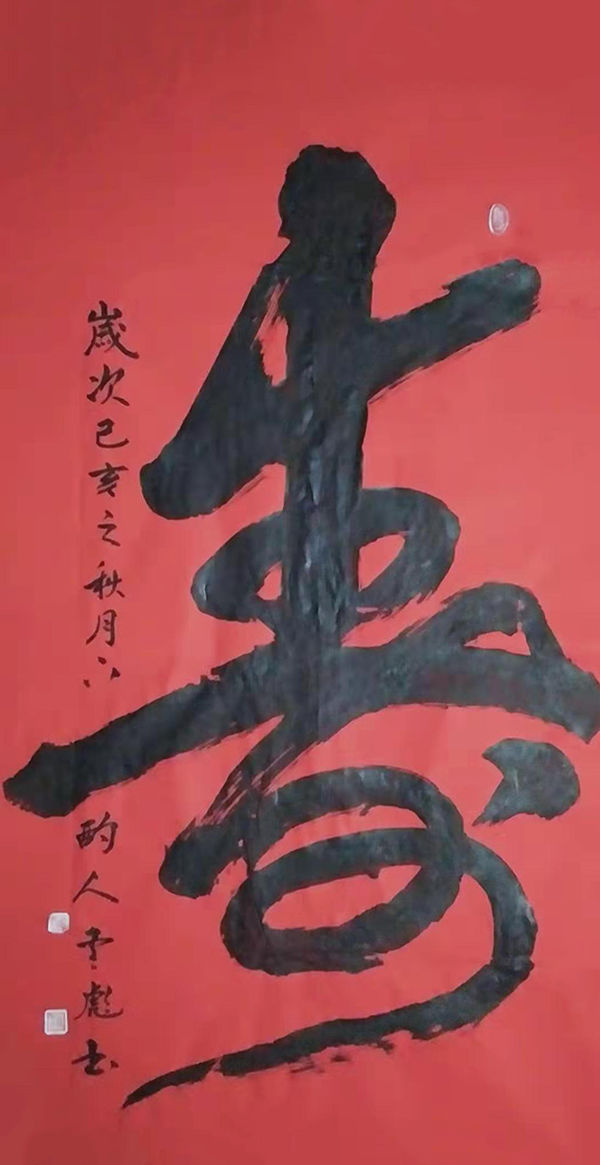 壽
歲次己亥之秋月下
酌人李彪書